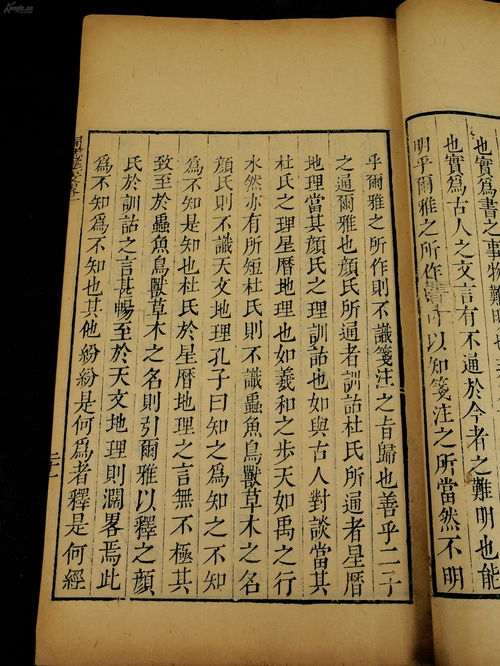 也實爲書之事物難明也
也實爲古人之文言有不通於今者之難明也能
明乎爾雅之所作者可以知箋注之所當然不明
乎爾雅之所作則不識箋注之旨歸也善乎二子
之通爾雅也顏氏所通者訓詁杜氏所通者星曆
地理當其顏氏之理訓詁也如與古人對談當其
杜氏之理星曆地理也如羲和之步天如禹之行
水然亦有所短杜氏則不識蟲魚鳥獸草木之名
顏氏則不識天文地理孔子曰知之爲知之不知
爲不知是知也杜氏於星曆地理之言無不極其
致至於蟲魚鳥獸草木之名則引爾雅以釋之顏
氏於訓詁之言甚暢至於天文地理則濶畧焉此
爲不知爲不知也其他紛紛是何爲者釋是何經